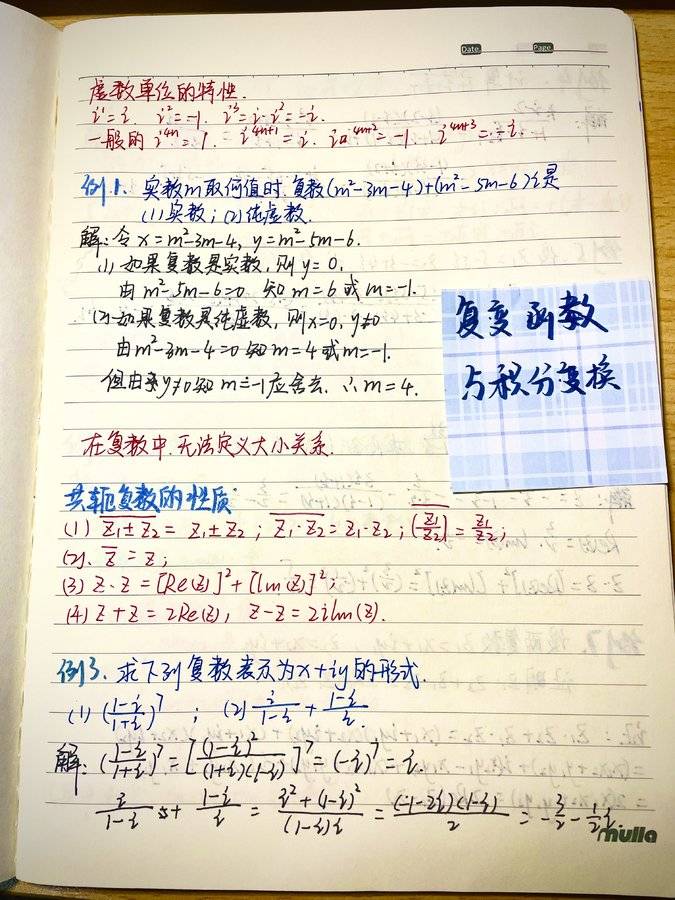 Date. Page.
虚数单位的特性.
i¹=i. i²=-1. i³=i·i²=-i.
一般的 i⁴ⁿ=1. i⁴ⁿ⁺¹=i. i⁴ⁿ⁺²=-1. i⁴ⁿ⁺³=-i
例1. 实数m取何值时.复数(m²-3m-4)+(m²-5m-6)i是
(1)实数;(2)纯虚数.
解:令x=m²-3m-4, y=m²-5m-6.
(1) 如果复数是实数,则y=0,
由m²-5m-6=0 知m=6或m=-1.
(2)如果复数是纯虚数,则x=0, y≠0
由m²-3m-4=0知m=4或m=-1.
但由y≠0知m=-1应舍去. ∴m=4.
复变函数
与积分变换
在复数中.无法定义大小关系.
共轭复数的性质
(1) \overline{z₁±z₂} = z₁±z₂ ; \overline{z₁·z₂}=z₁·z₂ ; \overline{(z₁/z₂)}=z₁/z₂;
(2). \overline{z}=z;
(3) z·z=[Re(z)]²+[Im(z)]²;
(4) z+z=2Re(z), z-z=2iIm(z).
例3. 求下列复数表示为x+iy的形式.
(1) ((1-i)/(1+i))⁷ ; (2) i/(1-i) + (1-i)/i.
解: ((1-i)/(1+i))⁷=[(1-i)²/((1+i)(1-i))]⁷=(-i)⁷=i
i/(1-i) + (1-i)/i = (i²+(1-i)²)/((1-i)i) = ((-1-2i)(1-i))/2 = -3/2-1/2i
mulla